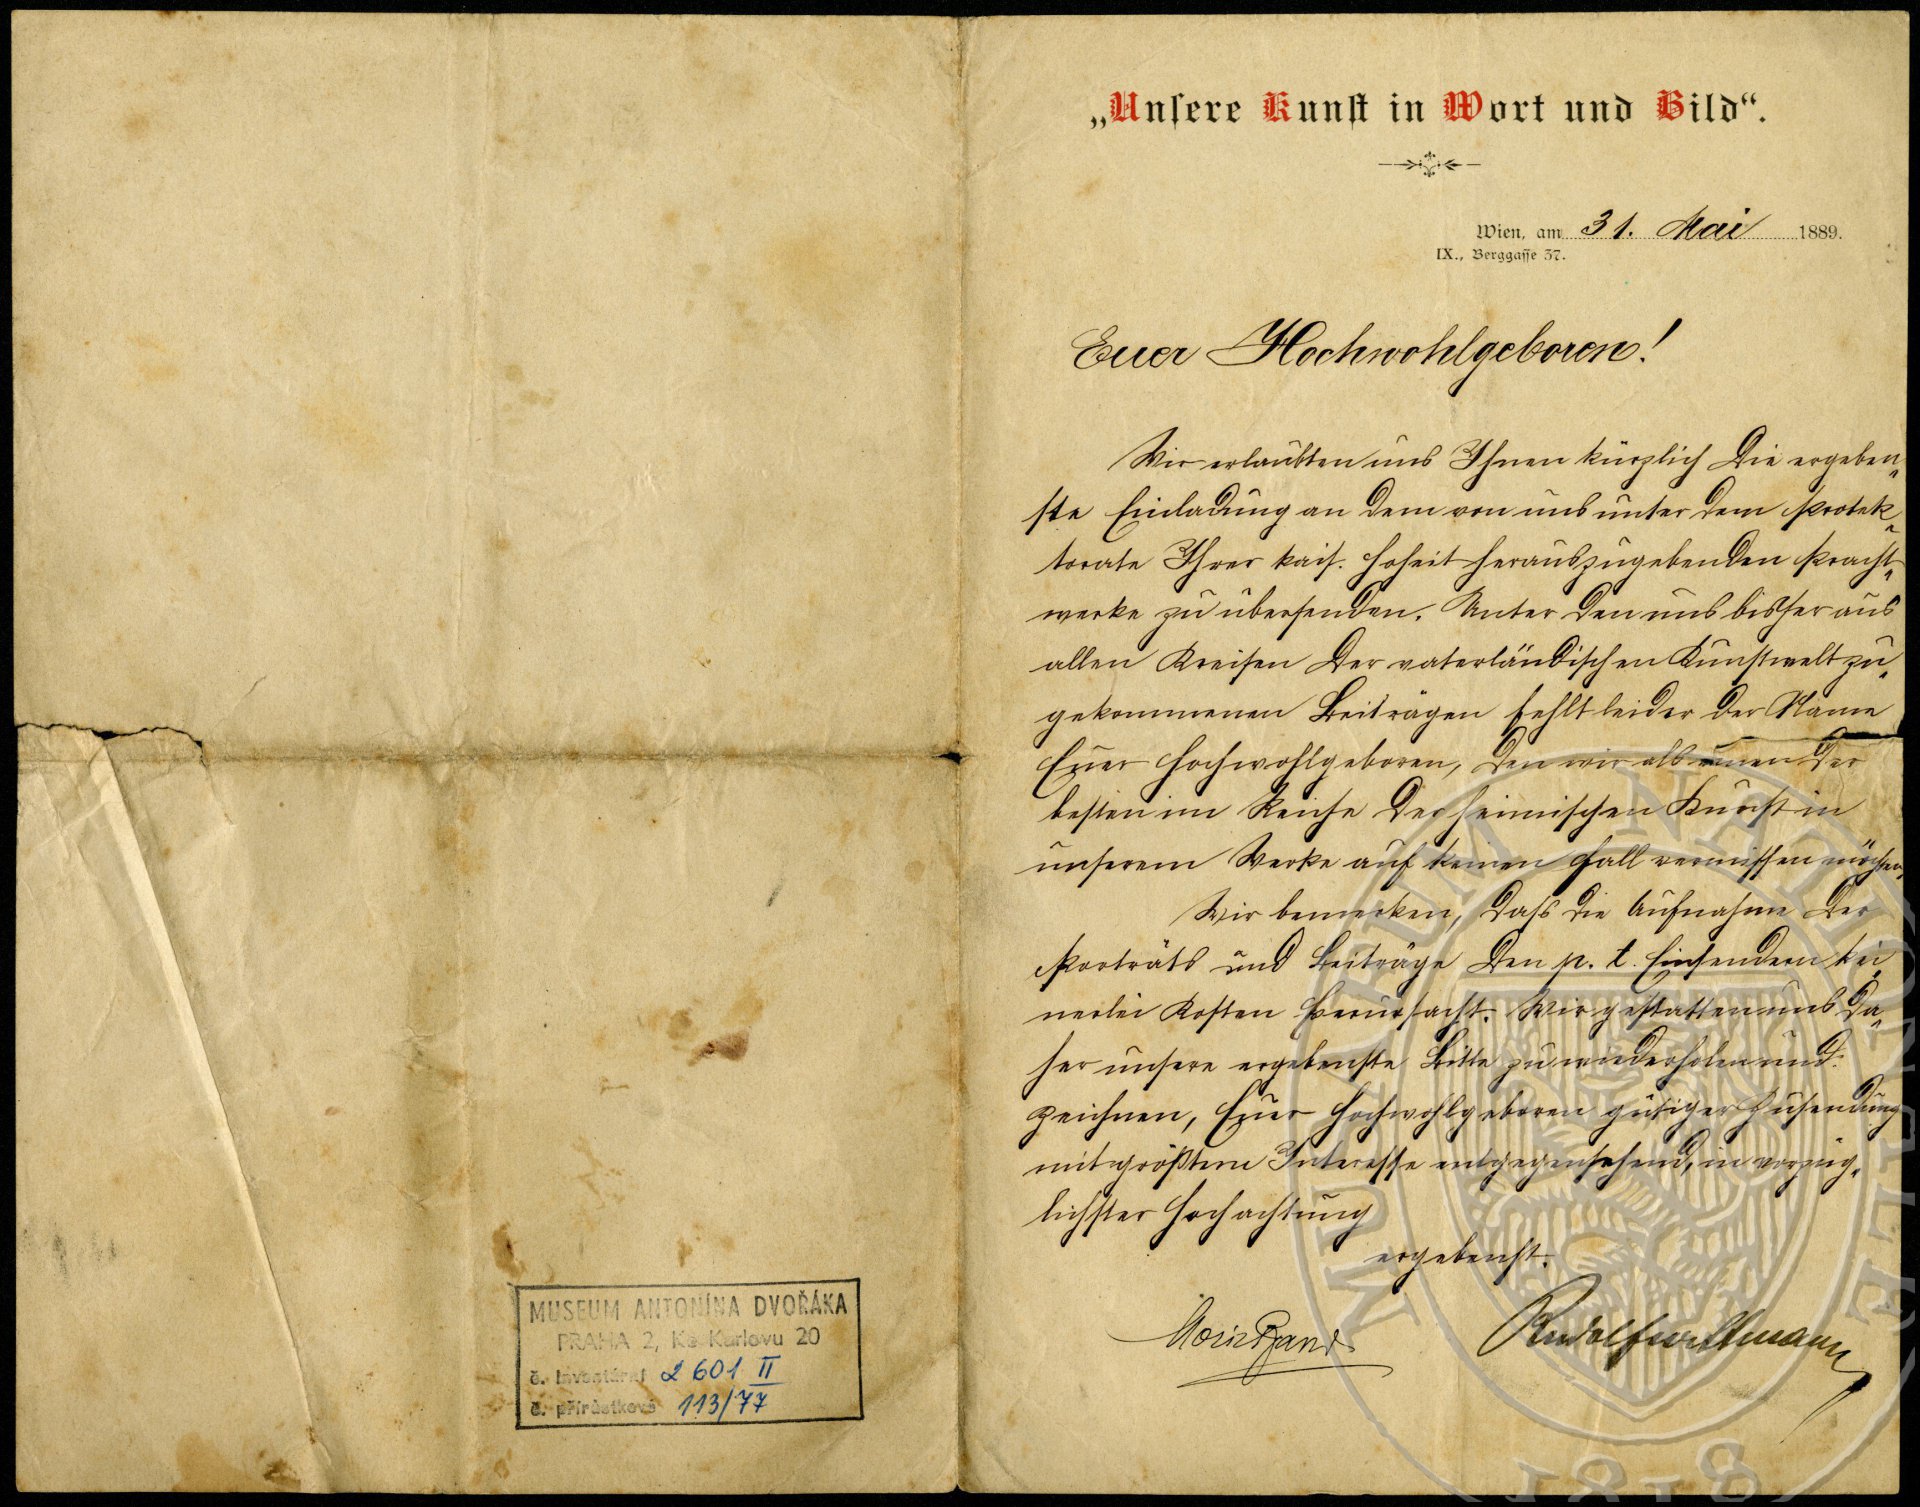 „Unsere Kunst in Wort und Bild“.
Wien, am 31. Mai 1889.
IX., Berggasse 37.
Euer Hochwohlgeboren!
Wir erlaubten uns Ihnen kürzlich die ergeben„
ste Einladung an dem von uns unter dem Protek„
torate Ihrer kais. Hoheit herauszugebenden Pracht„
werke zu übersenden. Unter den uns bisher aus
allen Kreisen der vaterländischen Kunstwelt zu„
gekommenen Beiträgen fehlt leider der Name
Euer Hochwohlgeboren, den wir als einen der
besten im Reiche der heimischen Kunst in
unserem Werke auf keinen Fall vermissen möchten.
Wir bemerken, daß die Aufnahme der
Porträts und Beiträge den p. t. Einsendern kei„
nerlei Kosten verursacht. Wir gestatten uns da„
her unsere ergebenste Bitte zu wiederholen und
zeichnen, Euer Hochwohlgeboren gütiger Zusendung
mit größtem Interesse entgegensehend, in vorzüg„
lichster Hochachtung
ergebenst.
Moriz Band
MUSEUM ANTONÍNA DVOŘÁKA
PRAHA 2, Ke Karlovu 20
č. inventární 2 601 II
č. přírůstkové 113/77
MUSAEUM NATIONALE
1818